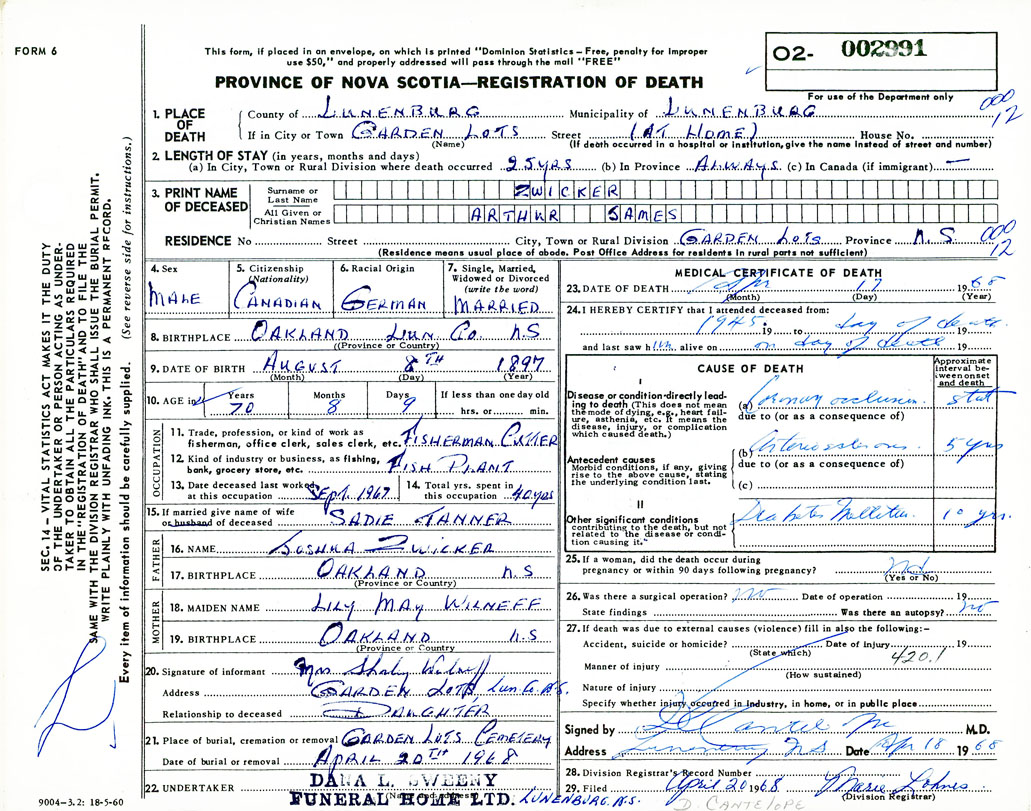 FORM 6
This form, if placed in an envelope, on which is printed "Dominion Statistics – Free, penalty for improper
use $50," and properly addressed will pass through the mail "FREE"
PROVINCE OF NOVA SCOTIA—REGISTRATION OF DEATH
O2- 002991
For use of the Department only
000
12
1. PLACE OF DEATH
County of LUNENBURG Municipality of LUNENBURG
If in City or Town GARDEN LOTS Street (AT HOME) House No.
(Name) (If death occurred in a hospital or institution, give the name instead of street and number)
2. LENGTH OF STAY (in years, months and days)
(a) In City, Town or Rural Division where death occurred 25 yrs (b) In Province ALWAYS (c) In Canada (if immigrant) —
3. PRINT NAME OF DECEASED
Surname or Last Name ZWICKER
All Given or Christian Names ARTHUR JAMES
RESIDENCE No Street City, Town or Rural Division GARDEN LOTS Province N.S.
000
12
(Residence means usual place of abode. Post Office Address for residents in rural parts not sufficient)
4. Sex
MALE
5. Citizenship (Nationality)
CANADIAN
6. Racial Origin
GERMAN
7. Single, Married, Widowed or Divorced (write the word)
MARRIED
8. BIRTHPLACE OAKLAND LUN. CO. N.S
(Province or Country)
9. DATE OF BIRTH AUGUST 8TH 1897
(Month) (Day) (Year)
10. AGE in Years Months Days If less than one day old
70 8 9 hrs. or min.
OCCUPATION
11. Trade, profession, or kind of work as
fisherman, office clerk, sales clerk, etc. FISHERMAN CUTTER
12. Kind of industry or business, as fishing,
bank, grocery store, etc. FISH PLANT
13. Date deceased last worked
at this occupation SEPT. 1967
14. Total yrs. spent in
this occupation 40 yrs
15. If married give name of wife
or husband of deceased SADIE TANNER
FATHER
16. NAME JOSHUA ZWICKER
17. BIRTHPLACE OAKLAND N.S
(Province or Country)
MOTHER
18. MAIDEN NAME LILY MAY WILNEFF
19. BIRTHPLACE OAKLAND N.S
(Province or Country)
20. Signature of informant Mrs.
Address GARDEN LOTS, Lun Co. N.S.
Relationship to deceased DAUGHTER
21. Place of burial, cremation or removal GARDEN LOTS CEMETERY
Date of burial or removal APRIL 20TH 1968
22. UNDERTAKER DANA L. SWEENY
FUNERAL HOME LTD. LUNENBURG, N.S.
MEDICAL CERTIFICATE OF DEATH
23. DATE OF DEATH Apr 17 1968
(Month) (Day) (Year)
24. I HEREBY CERTIFY that I attended deceased from:
1945 19 to day of death 19
and last saw him alive on on day of death 19
CAUSE OF DEATH
Approximate interval between onset and death
I
Disease or condition directly leading to death (This does not mean the mode of dying, e.g., heart failure, asthenia, etc. It means the disease, injury, or complication which caused death.)
(a) Coronary occlusion stat
due to (or as a consequence of)
Antecedent causes
Morbid conditions, if any, giving rise to the above cause, stating the underlying condition last.
(b) Arteriosclerosis 5 yrs
due to (or as a consequence of)
(c)
II
Other significant conditions contributing to the death, but not related to the disease or condition causing it."
Diabetes Mellitus 10 yrs.
25. If a woman, did the death occur during
pregnancy or within 90 days following pregnancy?
(Yes or No)
26. Was there a surgical operation? no Date of operation 19
State findings Was there an autopsy? no
27. If death was due to external causes (violence) fill in also the following:–
Accident, suicide or homicide? Date of injury 19
(State which) 420.1
Manner of injury
(How sustained)
Nature of injury
Specify whether injury occurred in industry, in home, or in public place
Signed by M.D.
Address Lunenburg N.S Date Apr 18 1968
28. Division Registrar's Record Number
29. Filed April 20 1968 Marie
(Division Registrar)
D. CANTELOPE
SEC. 14 – VITAL STATISTICS ACT MAKES IT THE DUTY
OF THE UNDERTAKER OR PERSON ACTING AS UNDER-
TAKER TO OBTAIN ALL THE PARTICULARS REQUIRED
IN THE "REGISTRATION OF DEATH" AND TO FILE THE
SAME WITH THE DIVISION REGISTRAR WHO SHALL ISSUE THE BURIAL PERMIT.
WRITE PLAINLY WITH UNFADING INK. THIS IS A PERMANENT RECORD.
Every item of information should be carefully supplied. (See reverse side for instructions.)
9004–3.2: 18-5-60